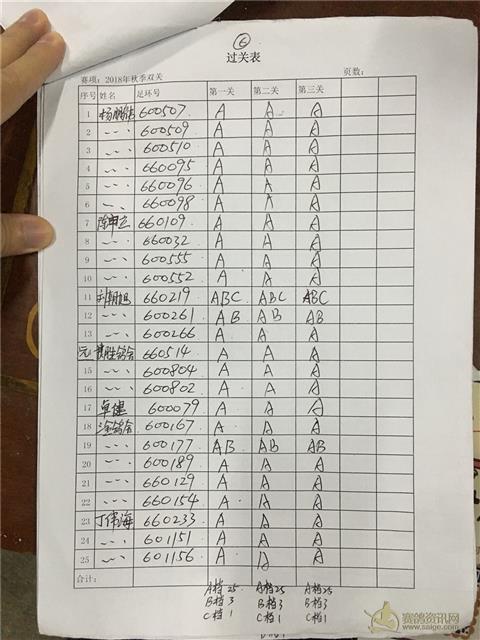 ⑥
过关表
赛项：2018年秋季双关 页数：
序号 姓名 足环号 第一关 第二关 第三关
1 杨鹏 600507 A A A
2 〃 600509 A A A
3 〃 600510 A A A
4 〃 660095 A A A
5 〃 660096 A A A
6 〃 660098 A A A
7 660109 A A A
8 〃 660032 A A A
9 〃 600555 A A A
10 〃 600552 A A A
11 刘朝旭 660219 ABC ABC ABC
12 〃 600261 AB AB AB
13 〃 600266 A A A
660514 A A A
15 〃 600804 A A A
16 〃 600802 A A A
17 卓健 600079 A A A
18 600167 A A A
19 〃 600177 AB AB AB
20 〃 600189 A A A
21 〃 660129 A A A
22 〃 660154 A A A
23 丁伟海 660233 A A A
24 〃 601151 A A A
25 〃 601156 A A A
合计：
A档25 A档25 A档25
B档3 B档3 B档3
C档1 C档1 C档1
赛鸽资讯网
www.saige.com